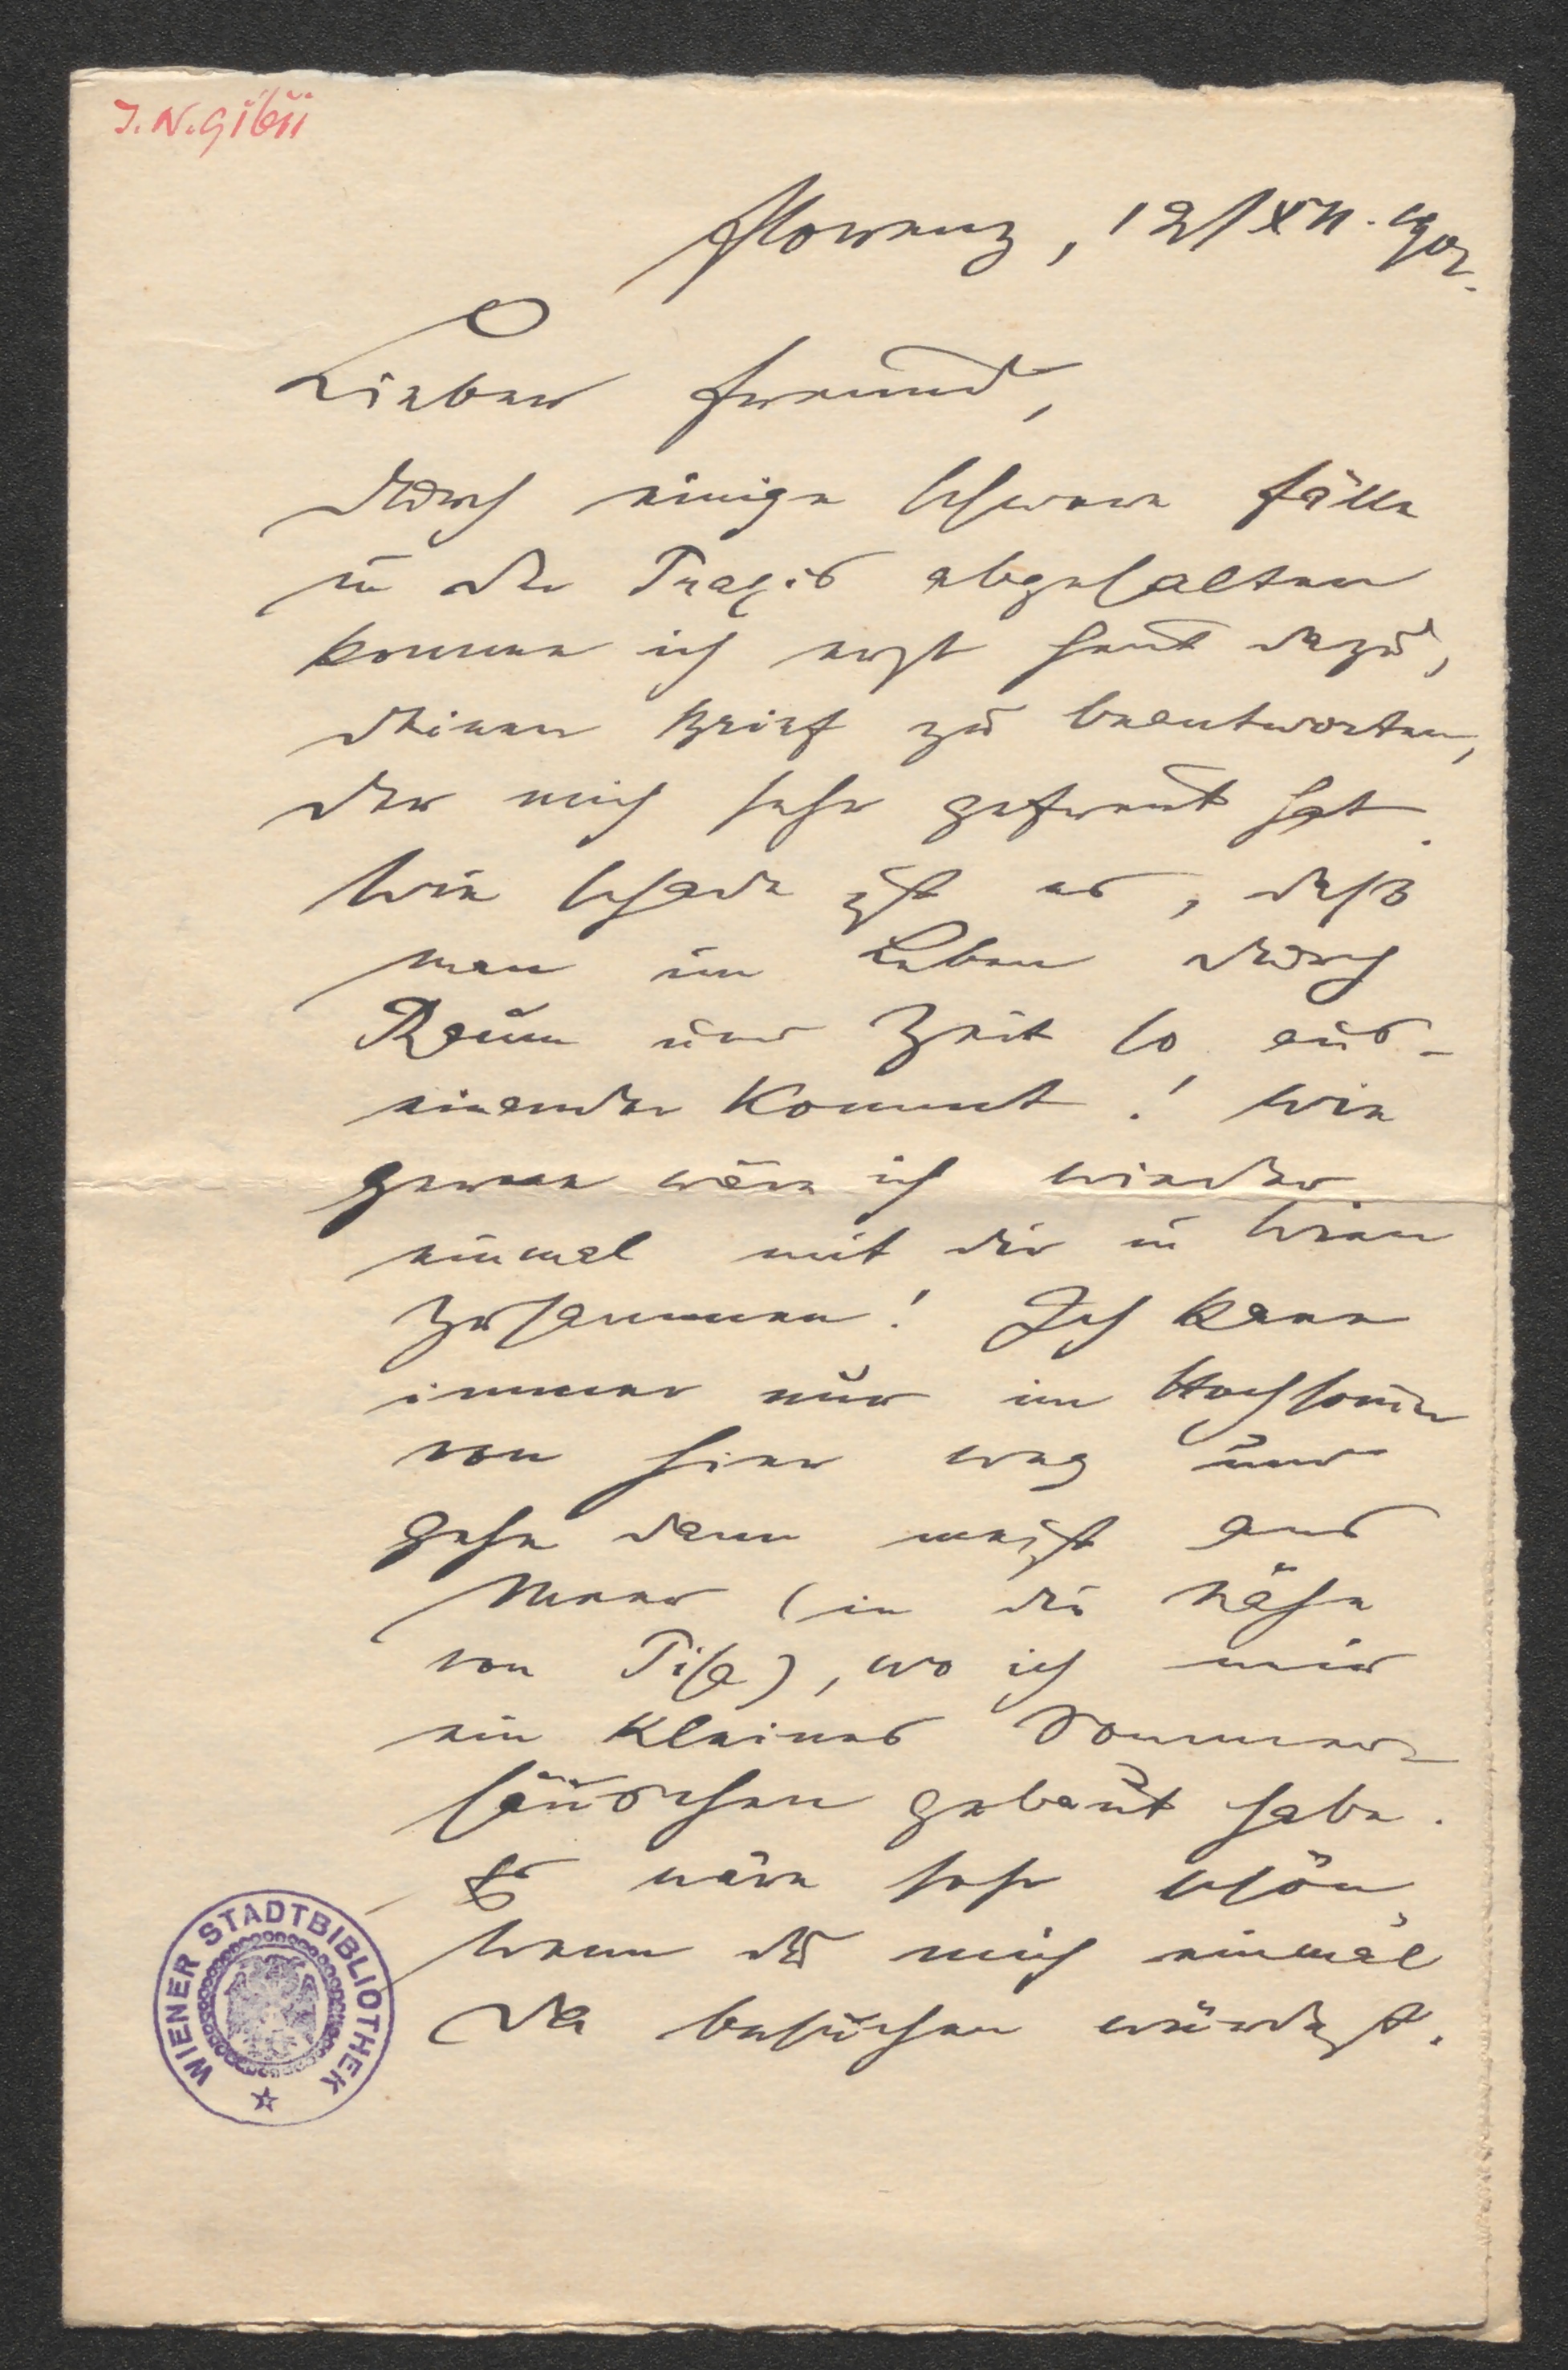 Florenz, 12/XII. 902.
Lieber Freund,
Durch einige schwere Fälle
in der Praxis abgehalten
komme ich erst heut dazu,
Deinen Brief zu beantworten,
der mich sehr gefreut hat.
Wie schade ist es, daß
man im Leben durch
Raum und Zeit so aus-
einander kommt! Wie
gerne wäre ich wieder
einmal mit dir in Wien
zusammen! Ich kann
immer nur im Hochsom̄er
von hier weg und
gehe dann meist ans
Meer (in die Nähe
von Pisa), wo ich mir
ein kleines Sommer-
häuschen gebaut habe.
Es wäre sehr schön,
wenn du mich einmal
da besuchen würdest.
WIENER STADTBIBLIOTHEK